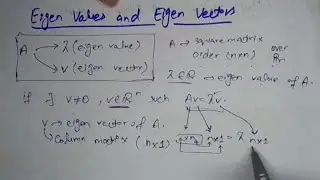 Eigen Values and Eigen Vectors
A → λ (eigen value)
→ v (eigen vector)
A → square matrix over
order (n×n) R.
λ ∈ R → eigen value of A.
if ∃ v≠0, v∈Rⁿ such Av=λv.
v → eigen vectors of A.
Column matrix (n×1) n×n n×1 = λ n×1